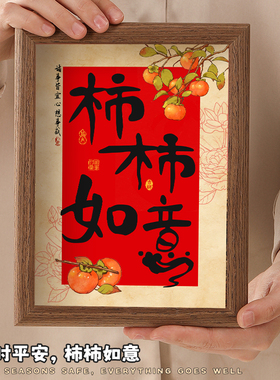 柿柿
如意
诸事皆宜心想事成
时平安，柿柿如意
SEASONS SAFE, EVERYTHING GOES WELL.